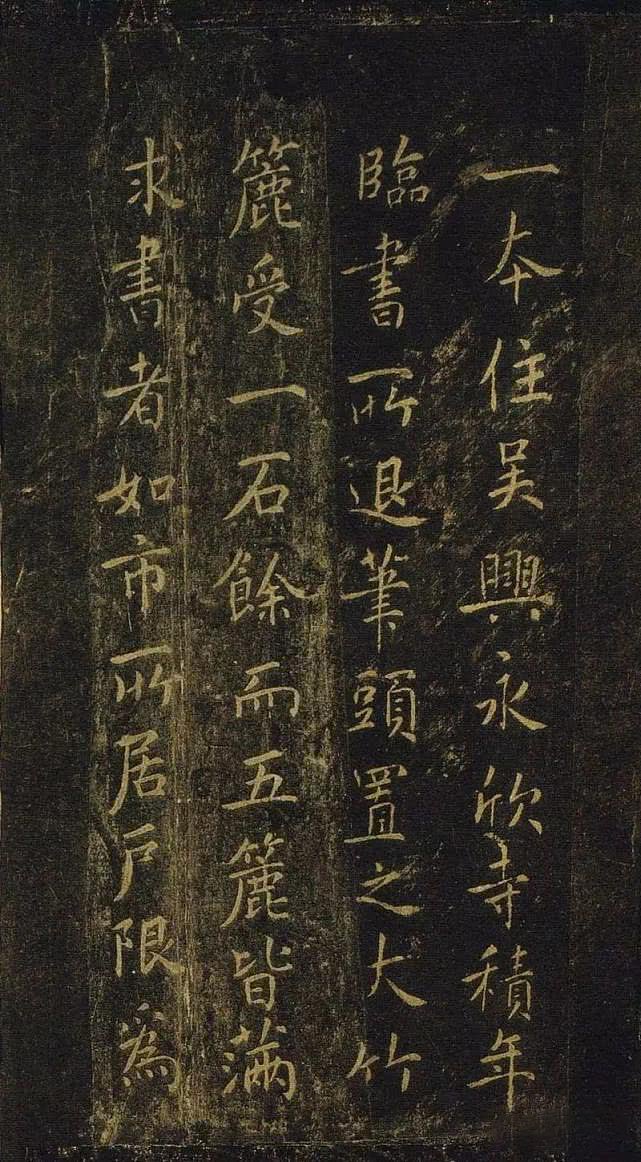 一本住吴興永欣寺積年
臨書所退筆頭置之大竹
簏受一石餘而五簏皆滿
求書者如市所居戶限為